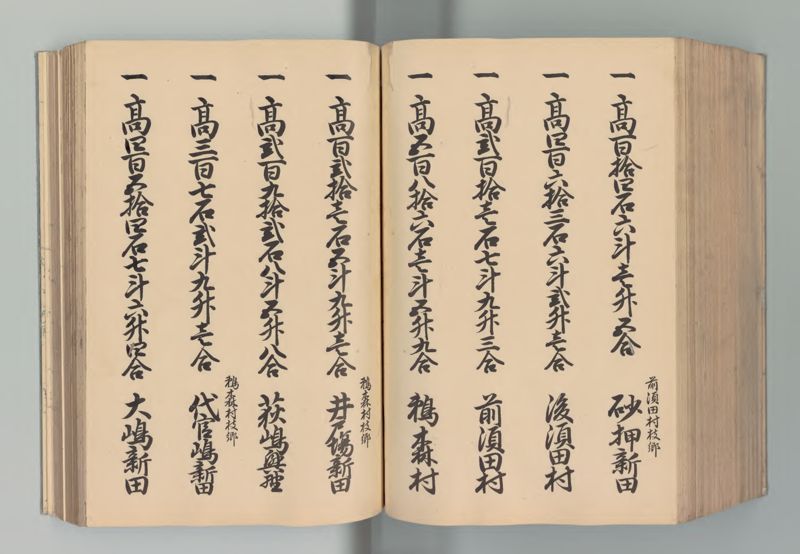 一 高百拾四石六斗壱升五合 前須田村枝郷 砂押新田
一 高四百六拾三石六斗弐升壱合 後須田村
一 高弐百拾壱石七斗九升三合 前須田村
一 高五百八拾六石壱斗五升九合 鵜森村
一 高百弐拾壱石五斗九升壱合 鵜森村枝郷 井戸場新田
一 高弐百九拾弐石八斗五升八合 荻嶋興野
一 高三百七石弐斗九升壱合 鵜森村枝郷 代官嶋新田
一 高四百五拾四石七斗六升四合 大嶋新田